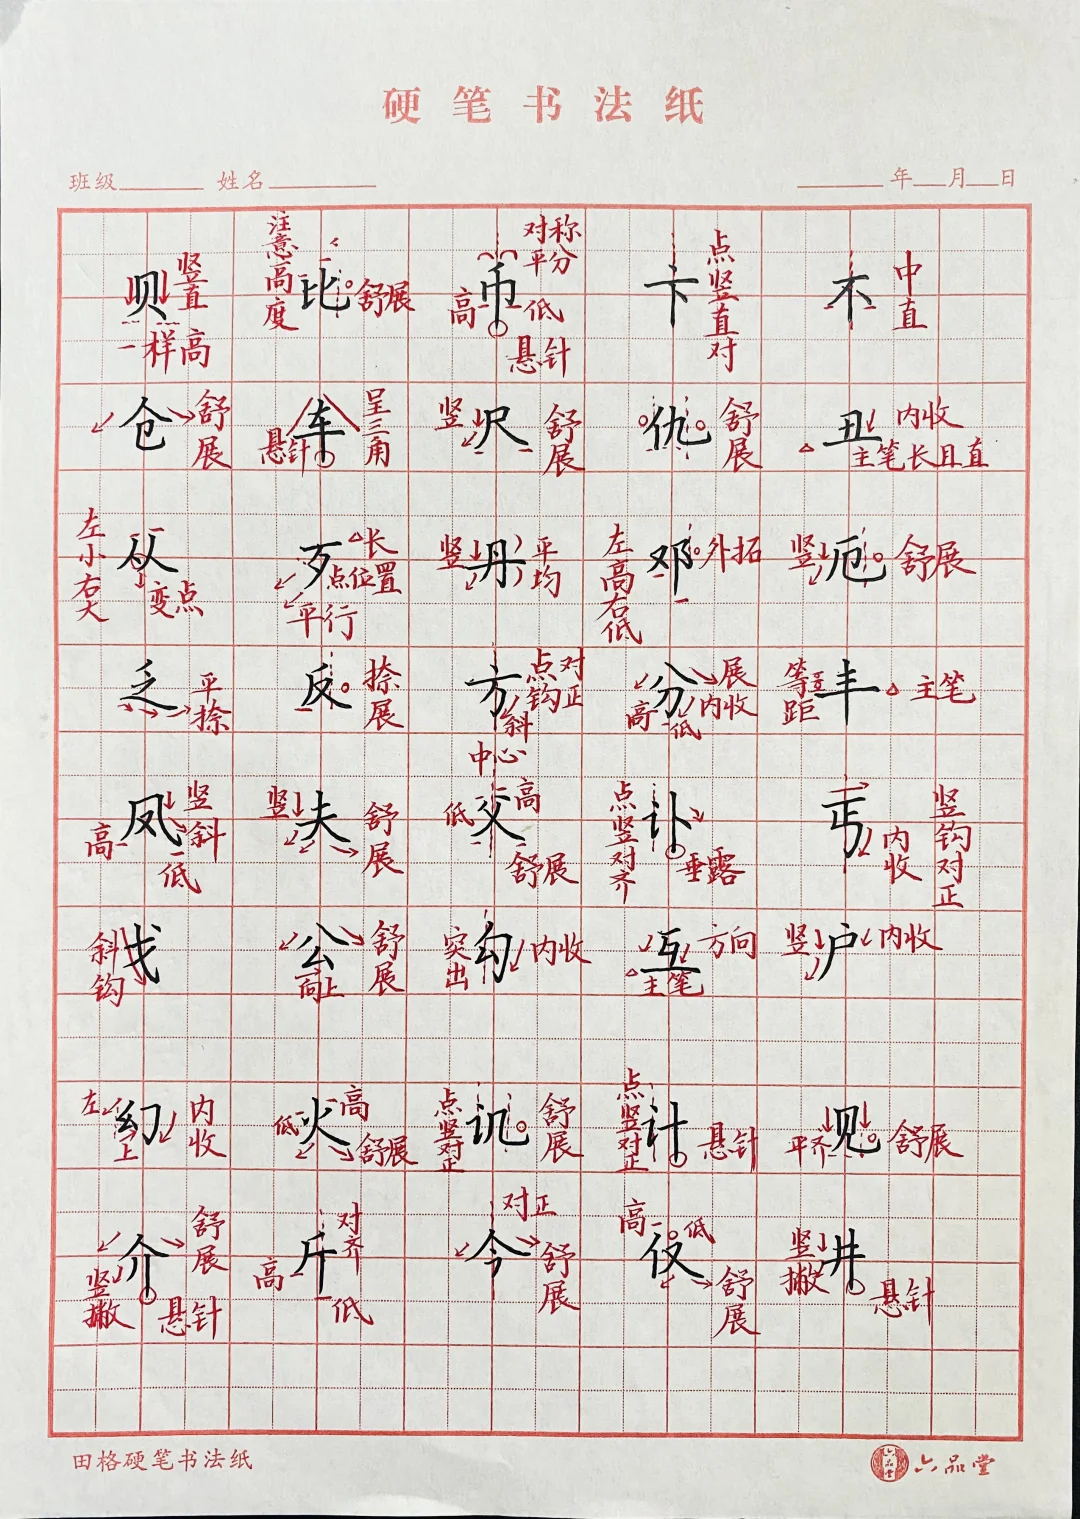 硬笔书法纸
班级 姓名 年 月 日
贝 竖直 一样高
比 注意高度 舒展
币 对称 平分 高 低 悬针
卞 点竖直对
不 中直
仓 舒展
车 呈三角 悬针
尺 竖 舒展
仇 舒展
丑 内收 主笔长且直
从 左小右大 变点
歹 长 点位置 平行
丹 竖 平均
邓 左高右低 外拓
厄 竖 舒展
乏 平捺
反 捺展
方 点钩对正 斜
分 展 内收 高 低
丰 等距 主笔
凤 竖斜 高 低
夫 竖 舒展
父 中心 高 低 舒展
讣 点竖对齐 垂露
丐 内收 竖钩对正
戈 斜钩
公 舒展 向上
勾 突出 内收
互 方向 主笔
户 竖 内收
幻 左上 内收
火 高 低 舒展
讥 点竖对正 舒展
计 点竖对正 悬针
见 平齐 舒展
介 舒展 竖撇 悬针
斤 对齐 高 低
今 对正 舒展
仅 高 低 舒展
井 竖撇 悬针
田格硬笔书法纸
六品堂 六品堂